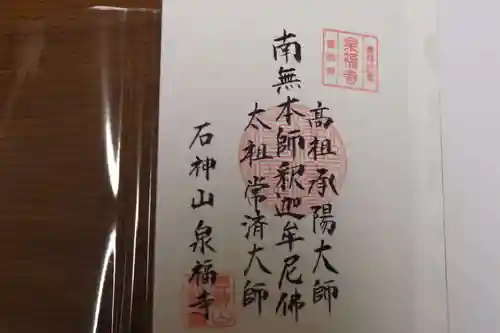 泉福寺
高祖承陽大師
南無本師釈迦牟尼佛
太祖常済大師
石神山泉福寺